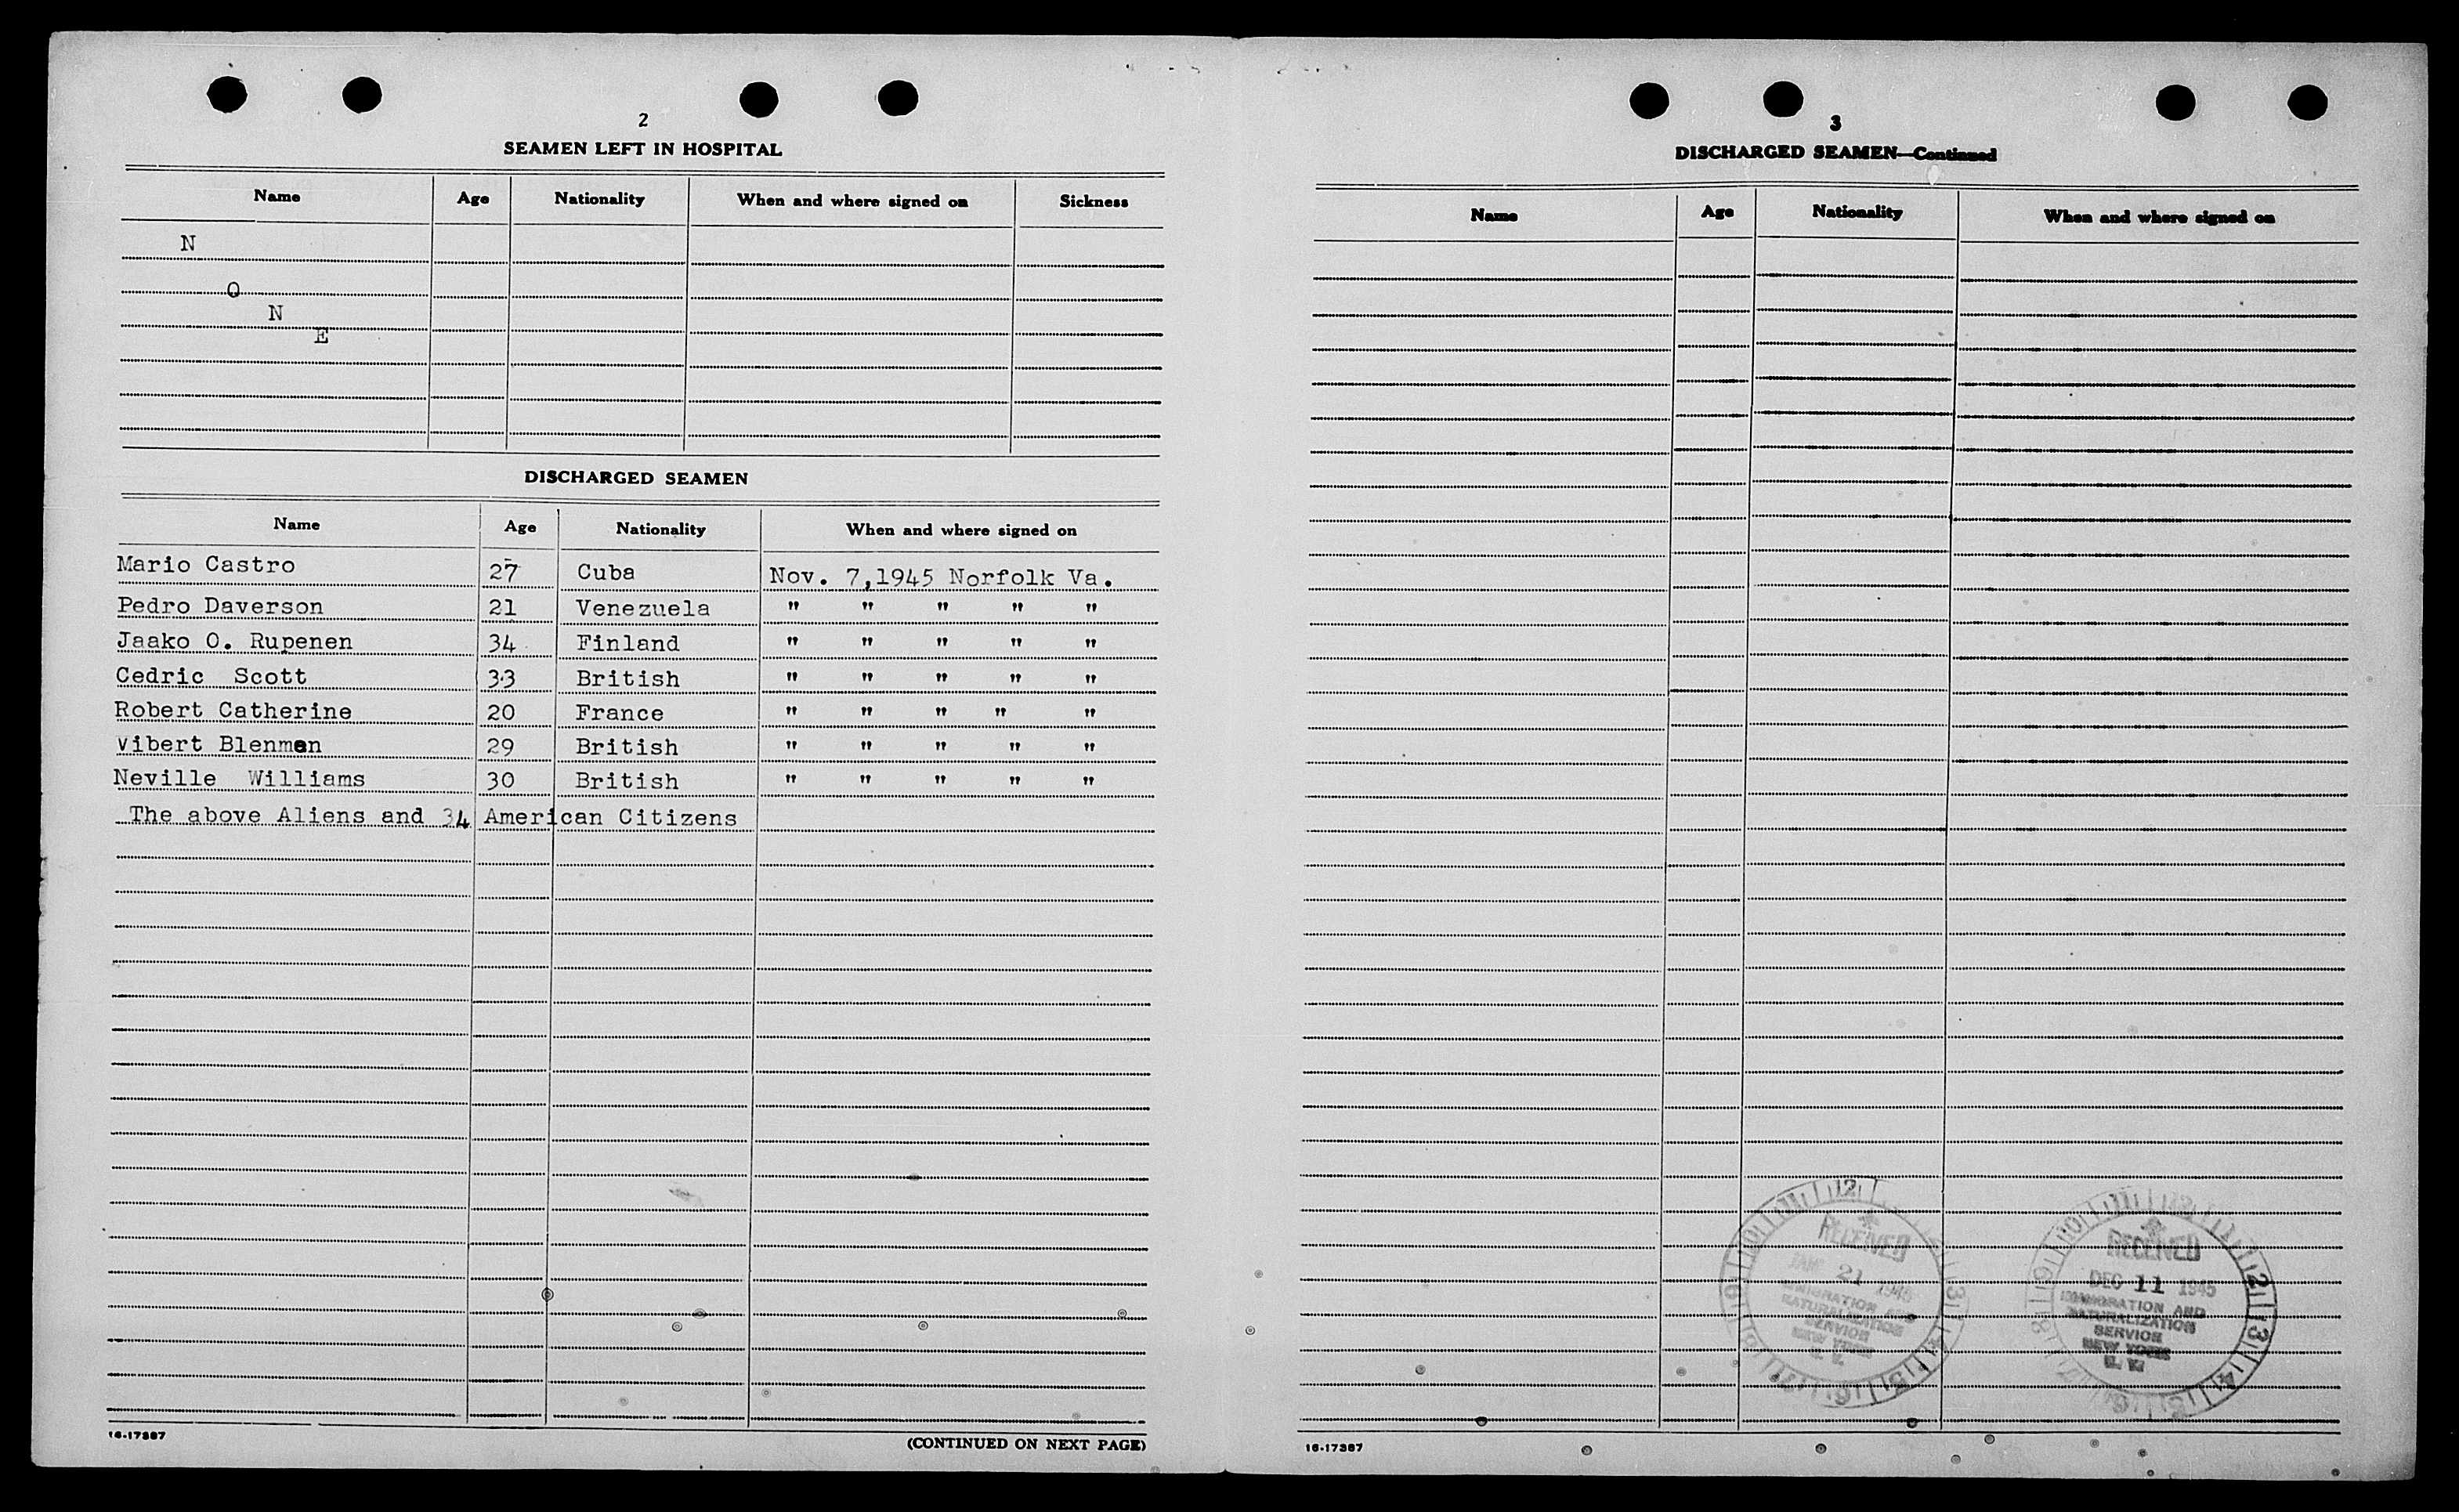 2
SEAMEN LEFT IN HOSPITAL
Name Age Nationality When and where signed on Sickness
N
O
N
E
DISCHARGED SEAMEN
Name Age Nationality When and where signed on
Mario Castro 27 Cuba Nov. 7,1945 Norfolk Va.
Pedro Daverson 21 Venezuela " " " " "
Jaako O. Rupenen 34 Finland " " " " "
Cedric Scott 33 British " " " " "
Robert Catherine 20 France " " " " "
Vibert Blenman 29 British " " " " "
Neville Williams 30 British " " " " "
The above Aliens and 34 American Citizens
16-17387
(CONTINUED ON NEXT PAGE)
3
DISCHARGED SEAMEN—Continued
Name Age Nationality When and where signed on
RECEIVED
21 1945
IMMIGRATION AND
NATURALIZATION
SERVICE
NEW YORK
N. Y.
RECEIVED
DEC 11 1945
IMMIGRATION AND
NATURALIZATION
SERVICE
NEW YORK
N. Y.
16-17387